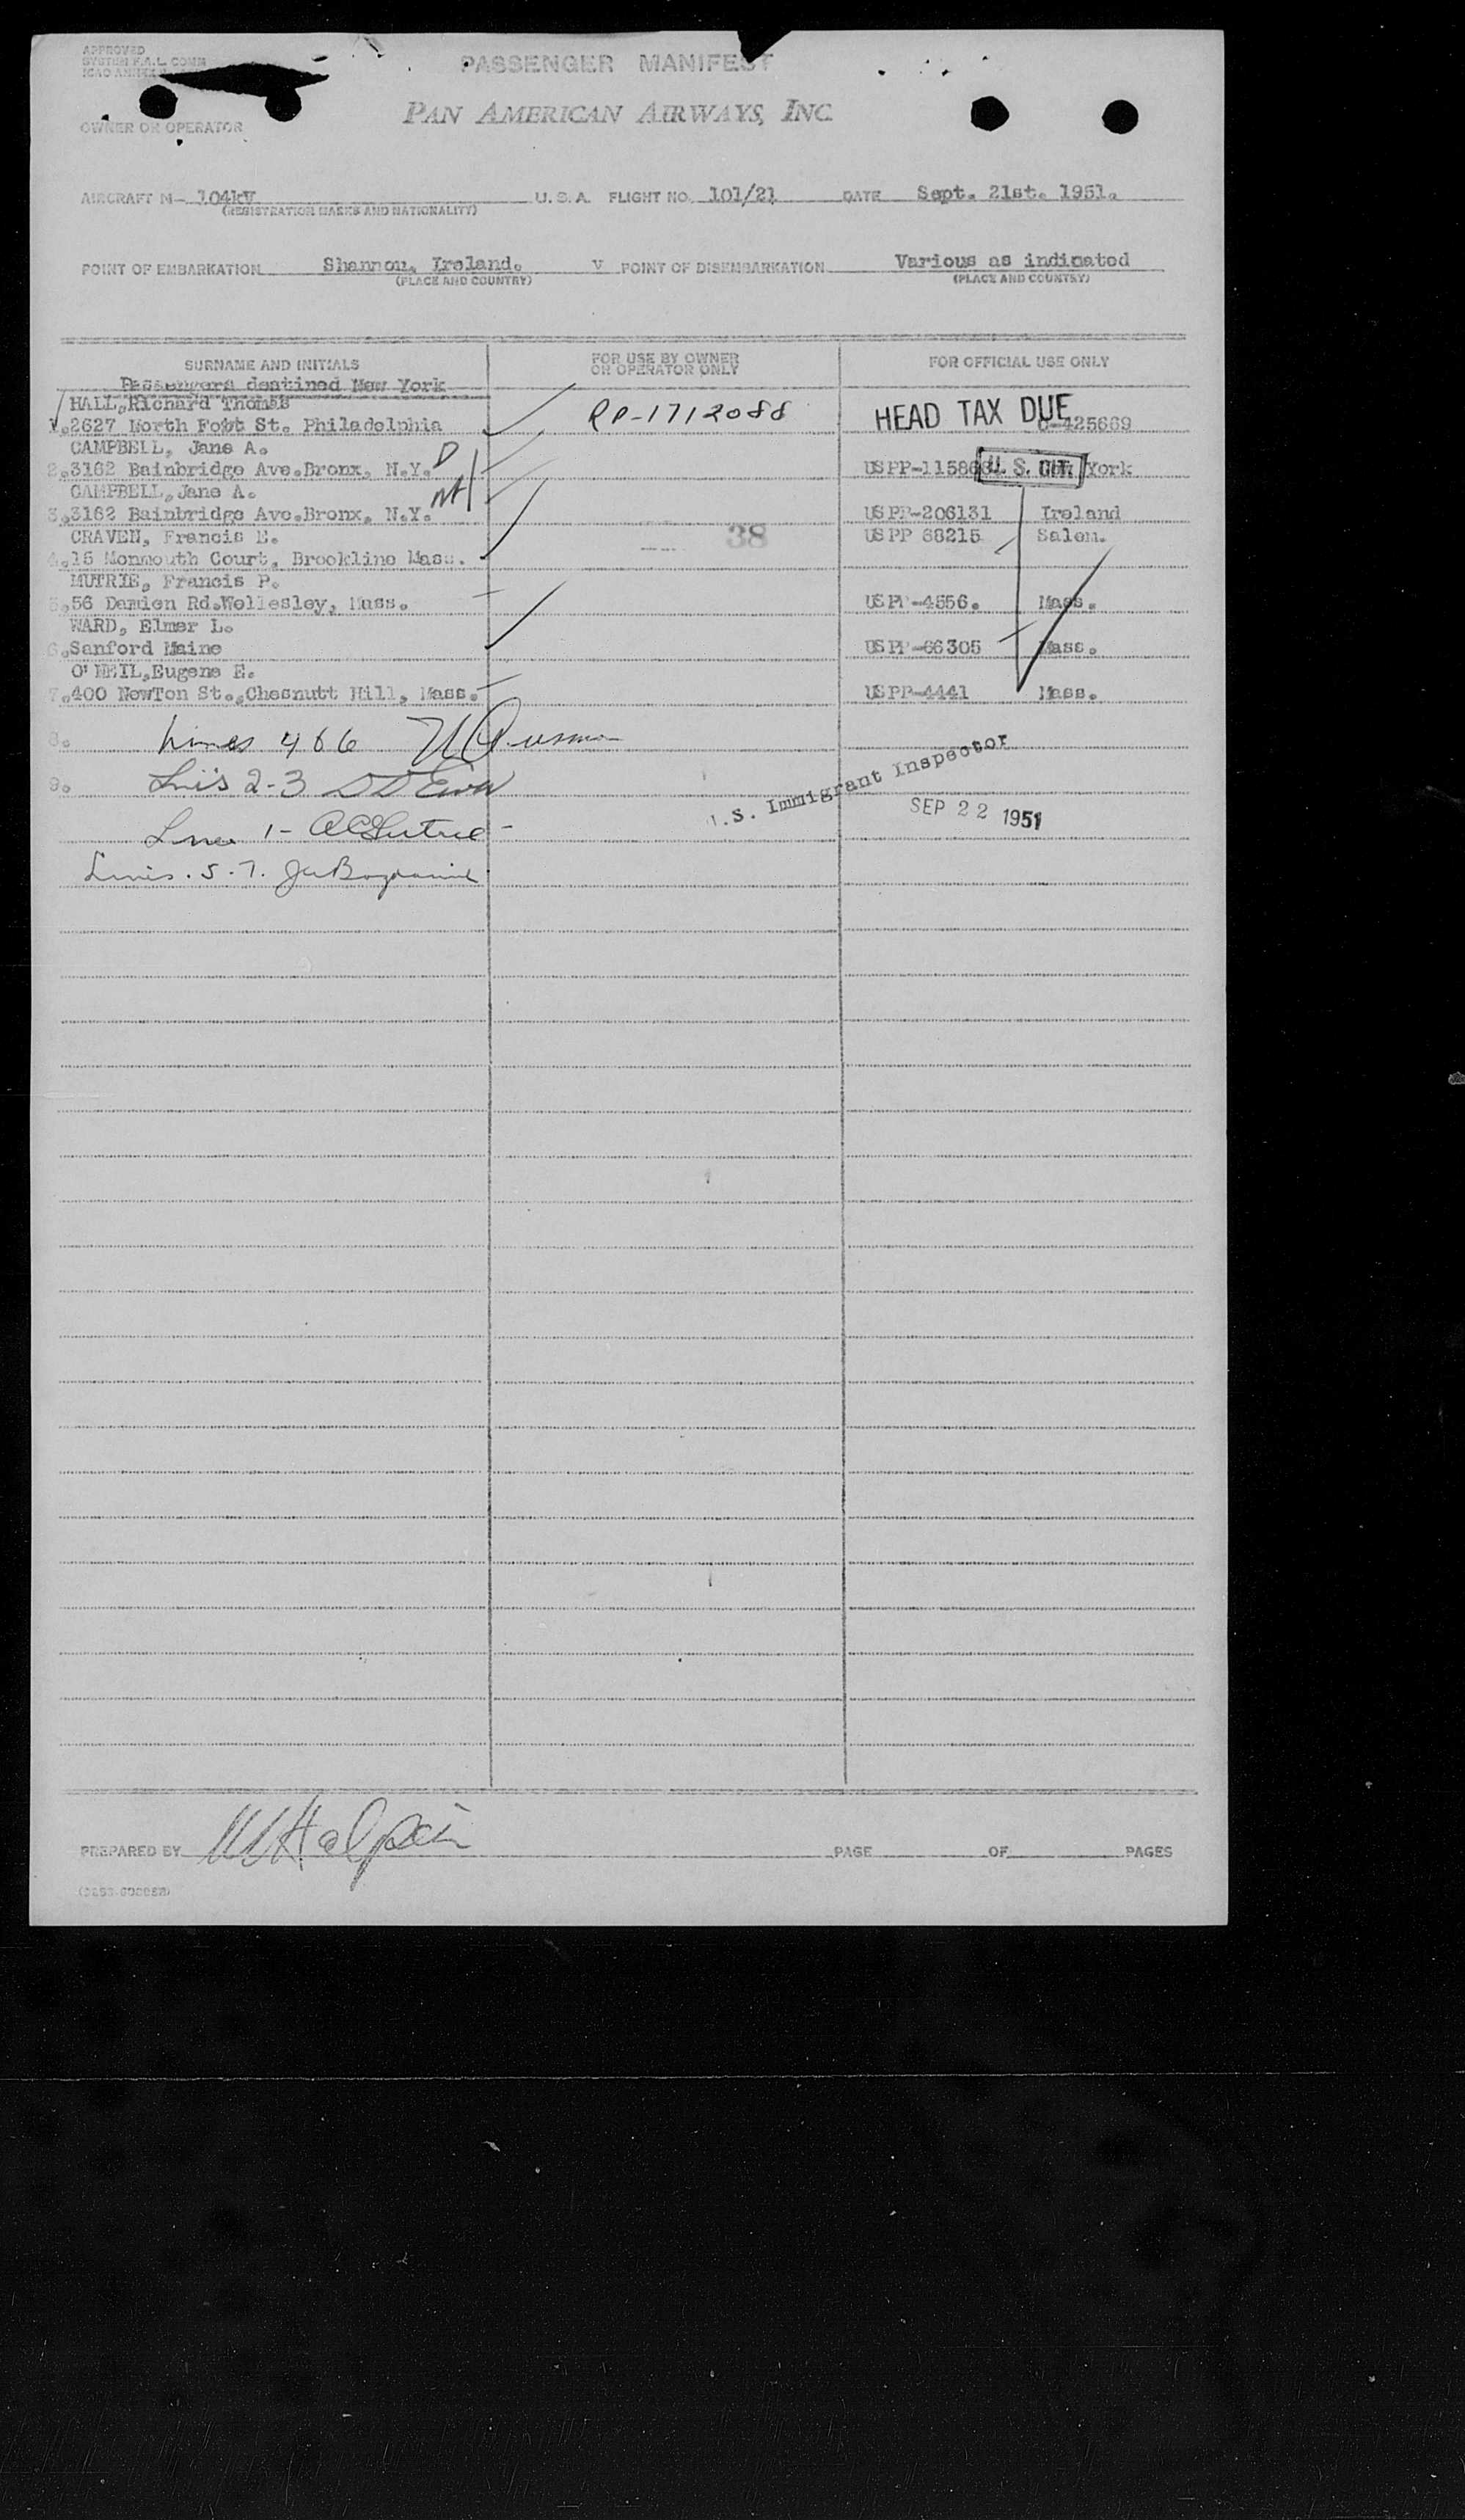 APPROVED
SYSTEM F.A.L. COMM
ICAO ANNEX
PASSENGER MANIFEST
PAN AMERICAN AIRWAYS, INC.
OWNER OR OPERATOR
AIRCRAFT N- 104kV U.S.A. FLIGHT NO. 101/21 DATE Sept. 21st. 1951.
(REGISTRATION MARKS AND NATIONALITY)
POINT OF EMBARKATION Shannon, Ireland. V POINT OF DISEMBARKATION Various as indicated
(PLACE AND COUNTRY) (PLACE AND COUNTRY)
SURNAME AND INITIALS FOR USE BY OWNER OR OPERATOR ONLY FOR OFFICIAL USE ONLY
Passengers destined New York
HALL, Richard Thomas
2627 North Foot St. Philadelphia RP-1712088 HEAD TAX DUE C-425669
CAMPBELL, Jane A. D
2. 3162 Bainbridge Ave. Bronx, N.Y. USPP-11586 U. S. CIT. York
CAMPBELL, Jane A.
3. 3162 Bainbridge Ave. Bronx, N.Y. USPP-206131 Ireland
CRAVEN, Francis E. 38 USPP 68215 Salem.
4. 15 Monmouth Court, Brookline Mass.
MUTRIE, Francis P.
5. 56 Damien Rd. Wellesley, Mass. USPP-4556. Mass.
WARD, Elmer L.
6. Sanford Maine USPP-66305 Mass.
O'NEIL, Eugene E.
7. 400 NewTon St., Chesnutt Hill, Mass. USPP-4441 Mass.
8. Lines 4 & 6
9. Lines 2-3
U.S. Immigrant Inspector
SEP 22 1951
Line 1-
Lines. 5-7.
PREPARED BY W Halpin PAGE OF PAGES